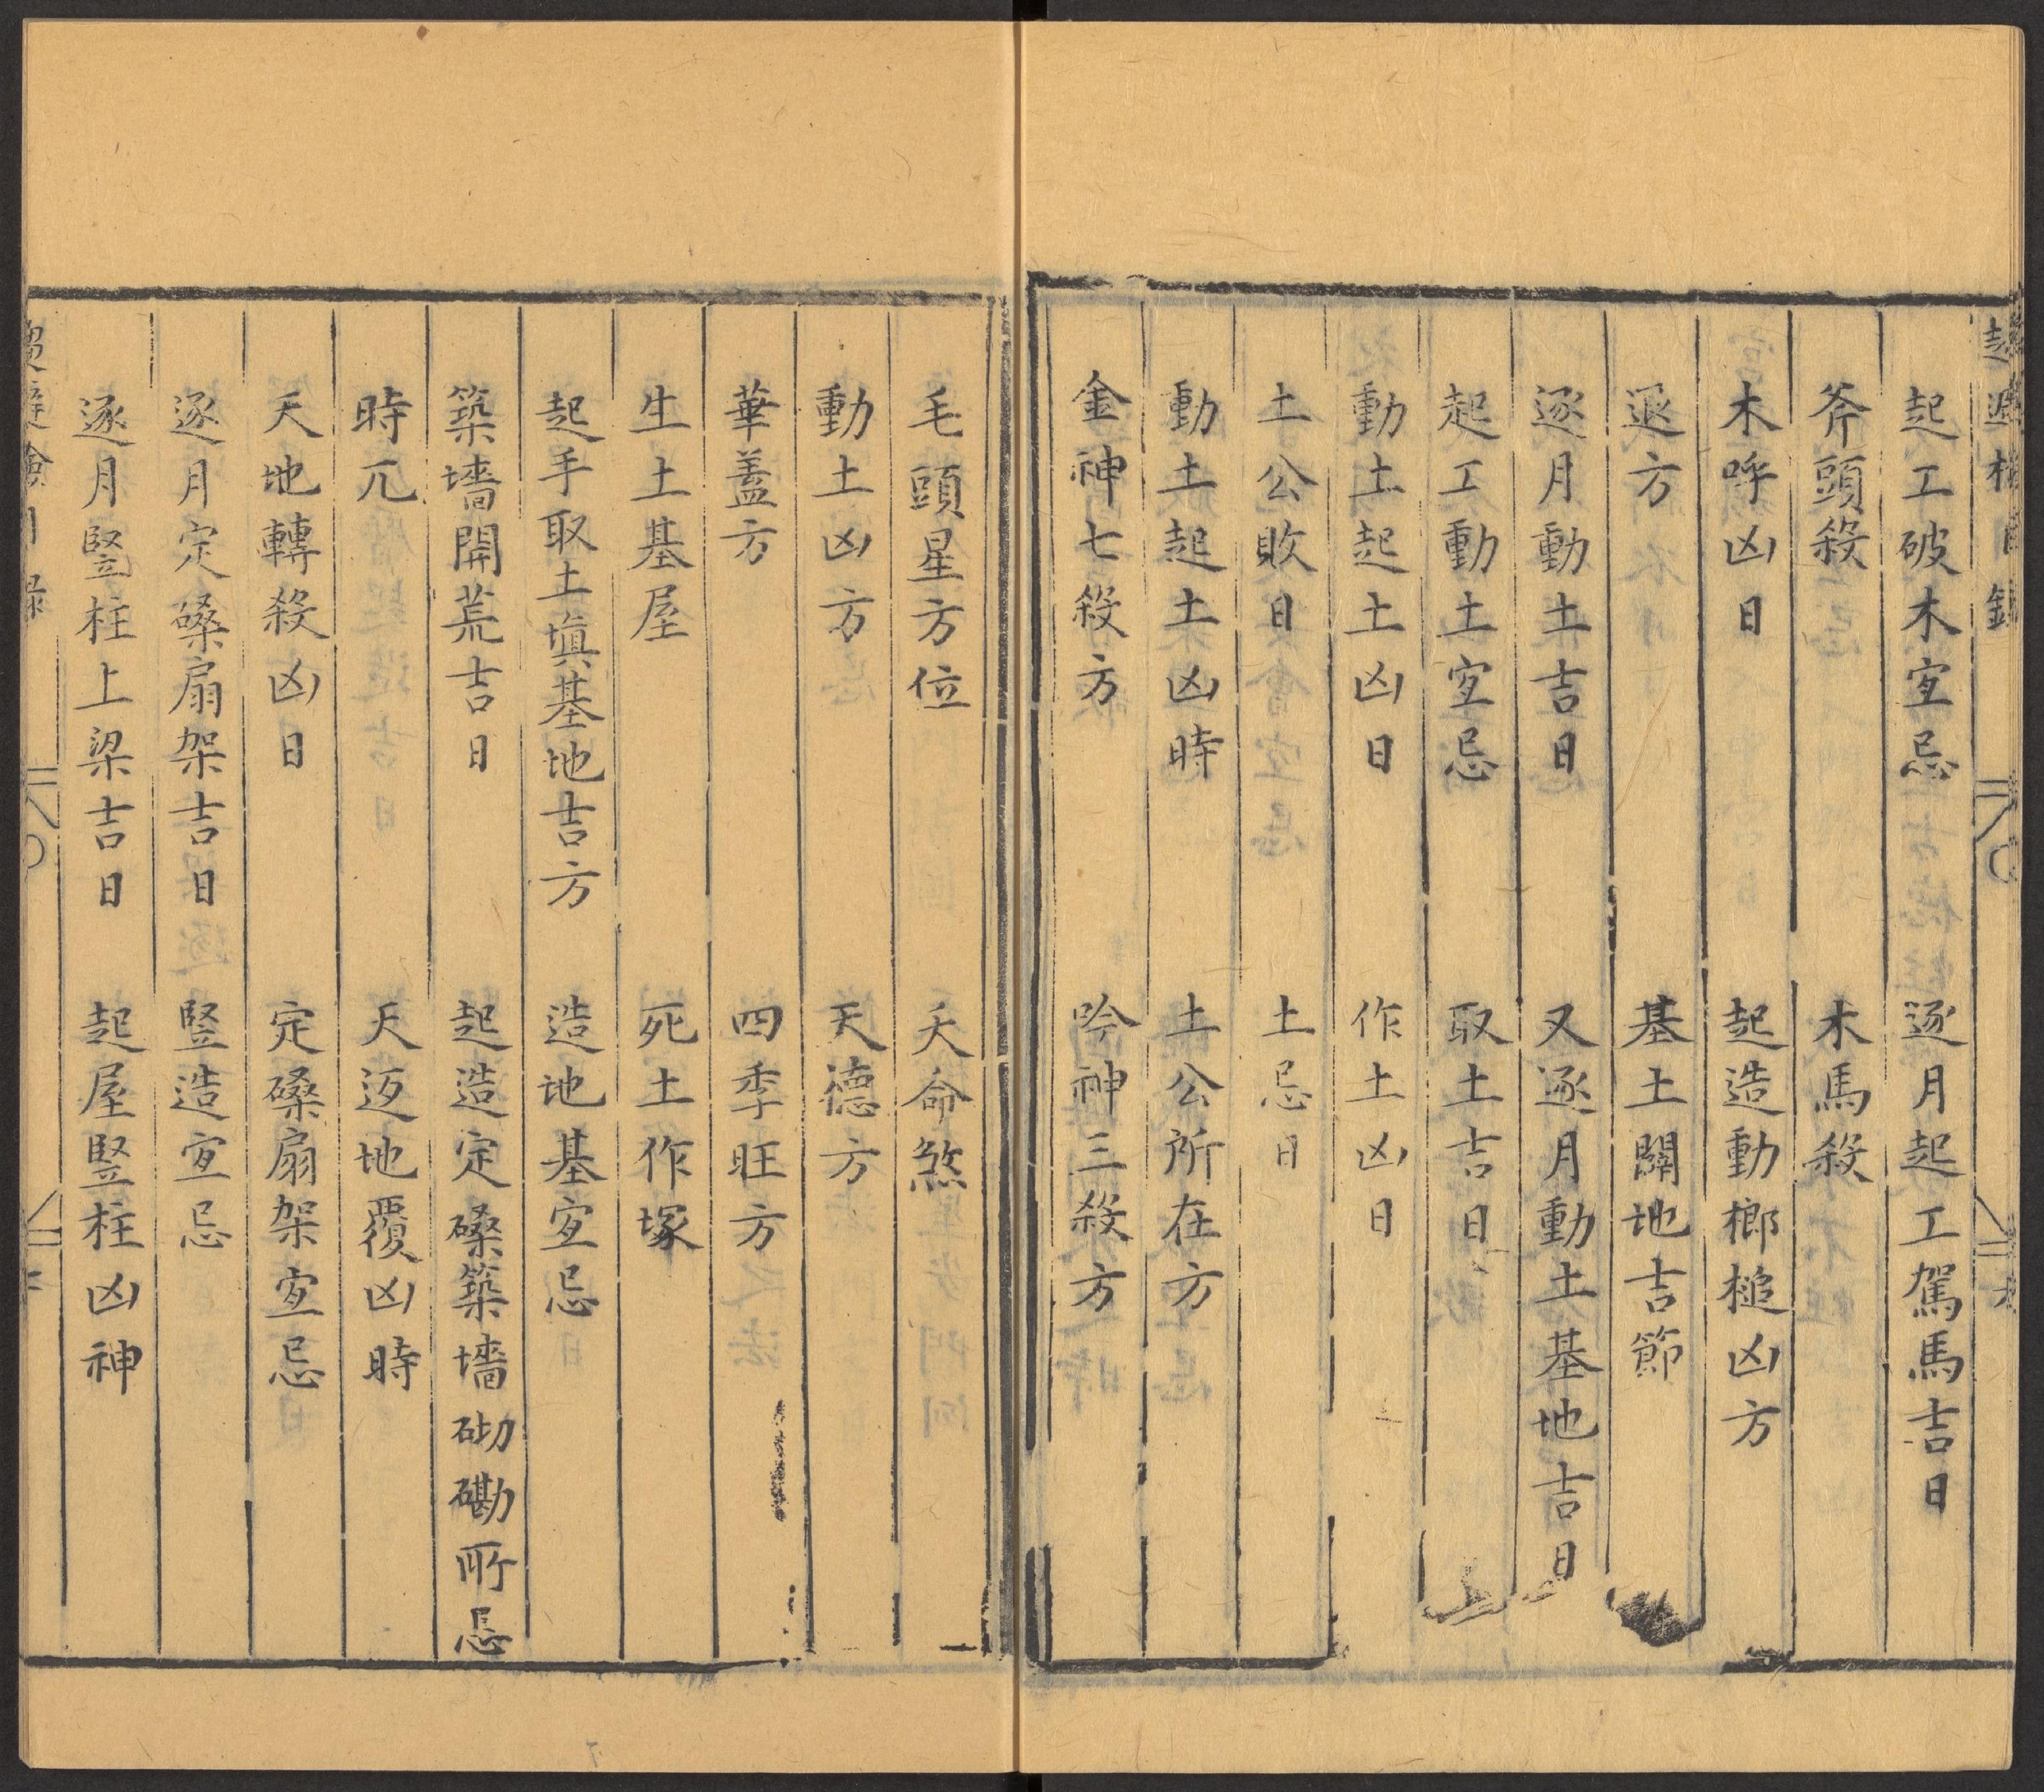 起工破木宜忌　逐月起工駕馬吉日
斧頭殺　木馬殺
木呼凶日　起造動榔槌凶方
退方　基土闢地吉節
逐月動土吉日　又逐月動土基地吉日
起工動土宜忌　取土吉日
動土起土凶日　作土凶日
土公敗日　土忌日
動土起土凶時　土公所在方
金神七殺方　吟神三殺方
毛頭星方位　夭命煞
動土凶方　天德方
華蓋方　四季旺方
生土基屋　死土作塚
起手取土塡基地吉方　造地基宜忌
築墻開荒吉日　起造定磉築墻砌磡所忌
時兀　天迈地覆凶時
天地轉殺凶日　定磉扇架宜忌
逐月定磉扇架吉日　豎造宜忌
逐月豎柱上梁吉日　起屋豎柱凶神